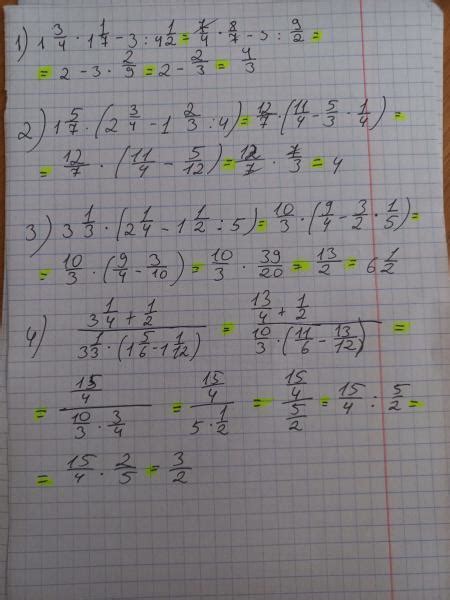 1) 1 3/4 · 1 1/7 - 3 : 4 1/2 = 7/4 · 8/7 - 3 : 9/2 =
= 2 - 3 · 2/9 = 2 - 2/3 = 4/3
2) 1 5/7 · (2 3/4 - 1 2/3 : 4) = 12/7 · (11/4 - 5/3 · 1/4) =
= 12/7 · (11/4 - 5/12) = 12/7 · 7/3 = 4
3) 3 1/3 · (2 1/4 - 1 1/2 : 5) = 10/3 · (9/4 - 3/2 · 1/5) =
= 10/3 · (9/4 - 3/10) = 10/3 · 39/20 = 13/2 = 6 1/2
4) (3 1/4 + 1/2) / (3 1/3 · (1 5/6 - 1 1/12)) = (13/4 + 1/2) / (10/3 · (11/6 - 13/12)) =
= (15/4) / (10/3 · 3/4) = (15/4) / (5 · 1/2) = (15/4) / (5/2) = 15/4 : 5/2 =
= 15/4 · 2/5 = 3/2